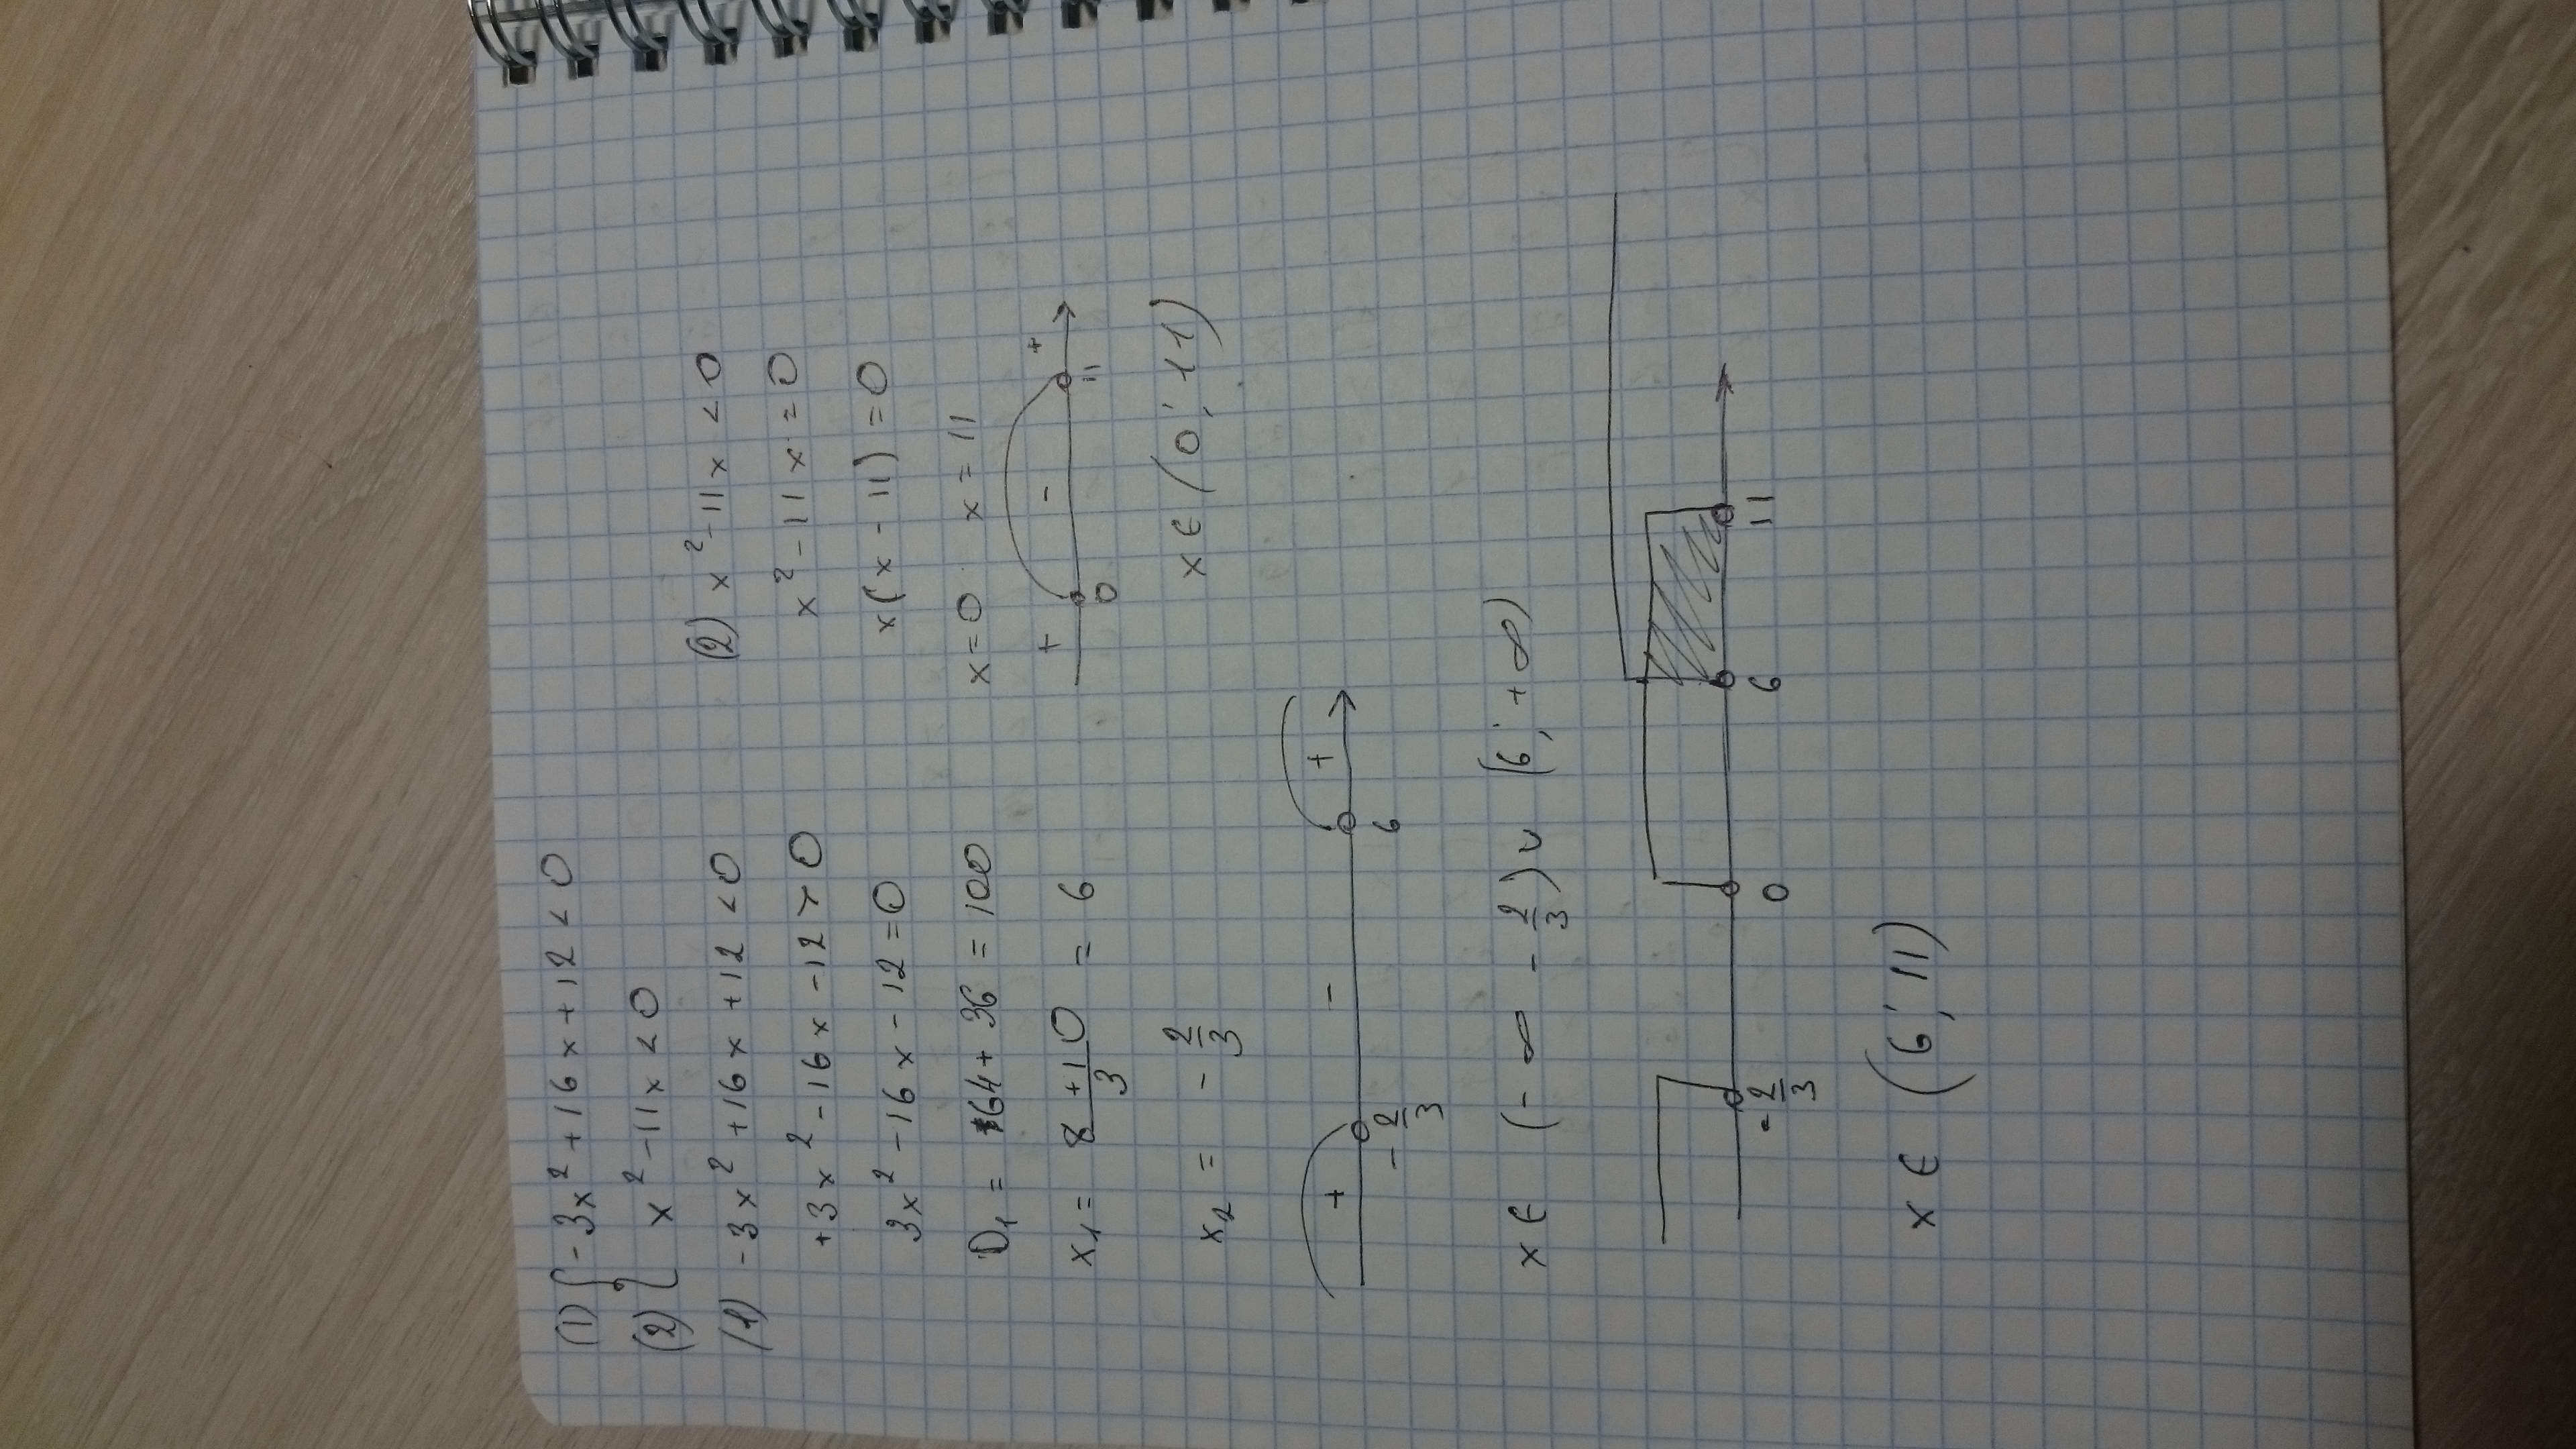 (1) { -3x² + 16x + 12 < 0
(2) { x² - 11x < 0
(1) -3x² + 16x + 12 < 0
+3x² - 16x - 12 > 0
3x² - 16x - 12 = 0
D₁ = 64 + 36 = 100
x₁ = (8 + 10)/3 = 6
x₂ = - 2/3
+ - +
- 2/3 6
x ∈ (- ∞ - 2/3) ∪ (6; +∞)
(2) x² - 11x < 0
x² - 11x = 0
x(x - 11) = 0
x = 0 x = 11
+ - +
0 11
x ∈ (0; 11)
- 2/3 0 6 11
x ∈ (6; 11)